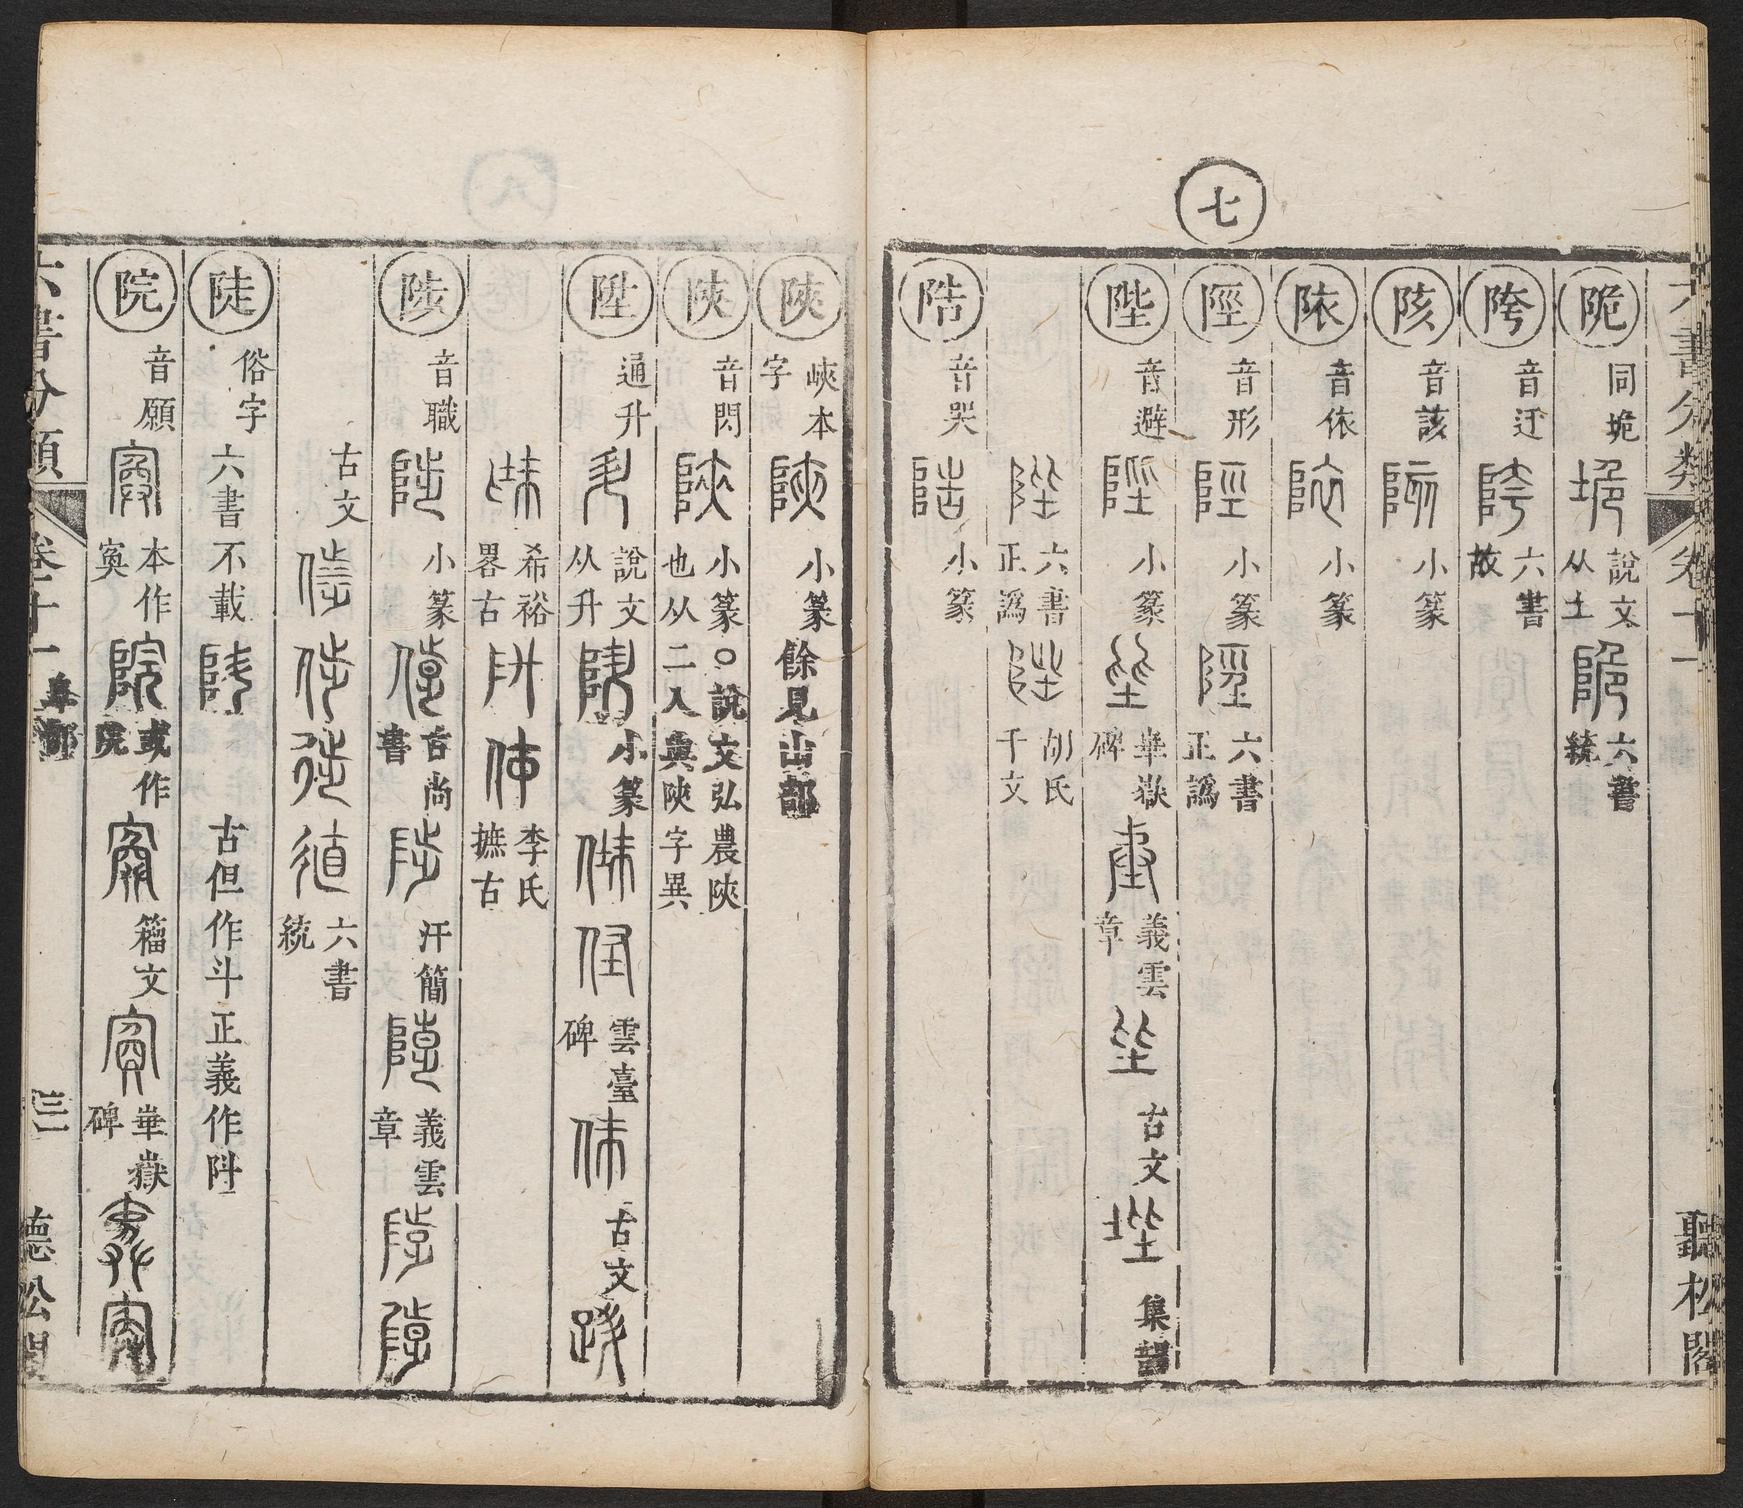 七
陒 同垝 說文从土 六書統
陓 音迂 六書故
陔 音該 小篆
陓 音依 小篆
陘 音形 小篆 六書正譌
陛 音避 小篆 華嶽碑 義雲章 古文 集韻
六書正譌 胡氏千文
陪 音哭 小篆
聽松閣
陝 峽本字 小篆 餘見山部
陝 音閃 小篆○說文弘農陝也从二入與陜字異
陞 通升 說文从升 小篆 雲臺碑 古文
希裕畧古 李氏摭古
陟 音職 小篆 古尚書 汗簡 義雲章
古文 六書統
陡 俗字 六書不載 古但作斗正義作阧
院 音願 本作寏 或作院 籀文 華嶽碑
六書分類 卷十一 阜部